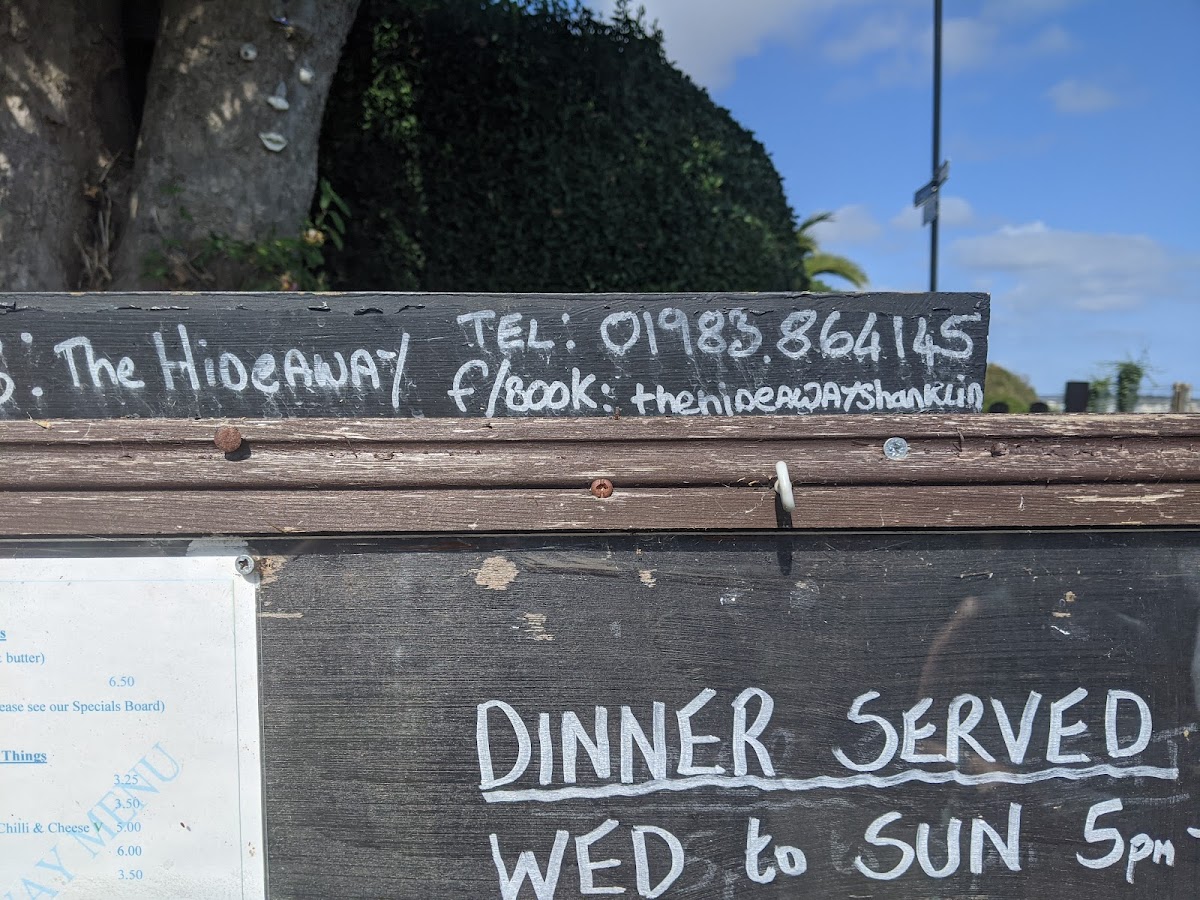 : The HideAWAY
TEL: 01983.864145
f/BOOK: theHIDEAWAYShankLin
butter)
6.50
ease see our Specials Board)
Things
3.25
3.50
Chilli & Cheese V 5.00
6.00
3.50
WAY MENU
DINNER SERVED
WED to SUN 5pm